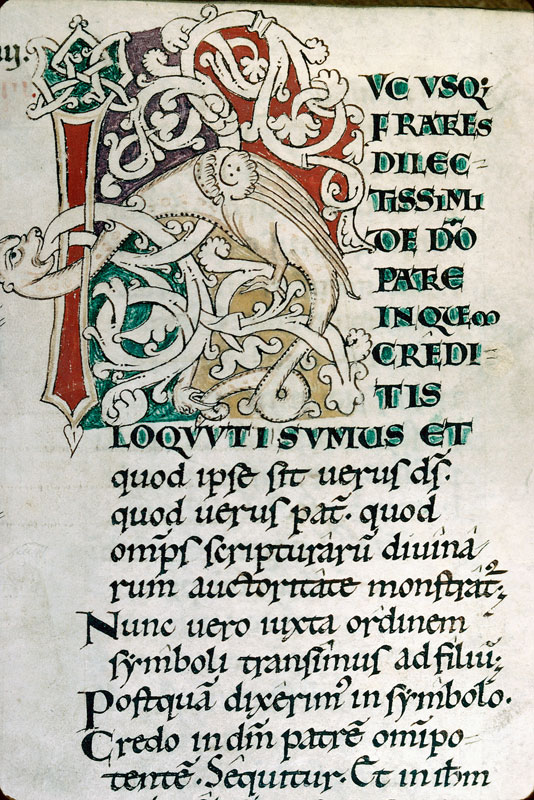 iiij.
HVC VSQ;
FRATRES
DILEC-
TISSIMI
DE DŌ
PATRE
IN QUEM
CREDI-
TIS
LOQVVTI SVMUS ET
quod ipse sit uerus d̄s.
quod uerus pat̄. quod
om̄ps scripturarū diuina
rum auctoritate monstrat᷑;
Nunc uero iuxta ordinem
symboli transimus ad filiū;
Postquā dixerimꝰ in symbolo.
Credo in dm̄ patrē om̄ipo-
tentē. Sequitur. Et in ihm̄